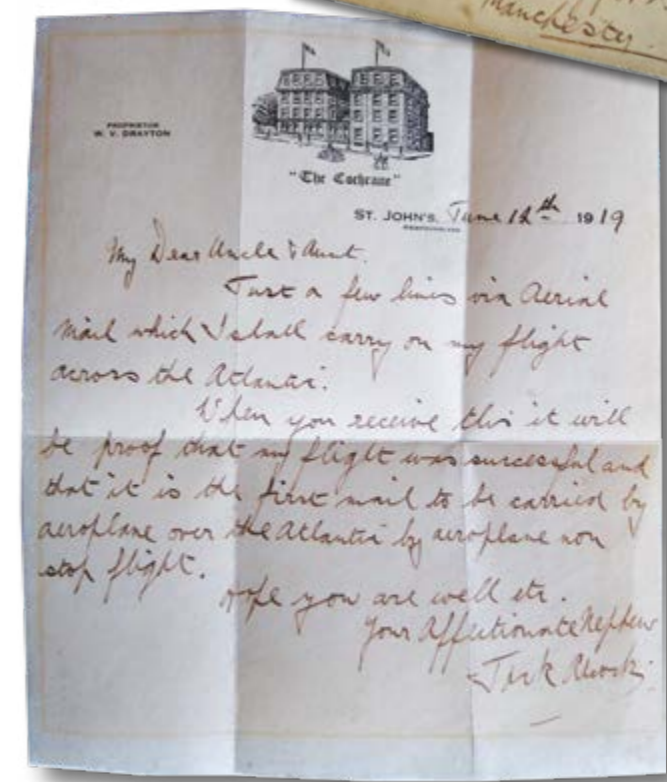 Manchester.
PROPRIETOR
W. V. DRAYTON
"The Cochrane"
ST. JOHN'S, June 12th 1919
My Dear Uncle & Aunt.
Just a few lines via Aerial
Mail which I shall carry on my flight
across the Atlantic.
When you receive this it will
be proof that my flight was successful and
that it is the first mail to be carried by
aeroplane over the Atlantic by aeroplane non
stop flight.
Hope you are well etc.
Your Affectionate Nephew
Jack Alcock